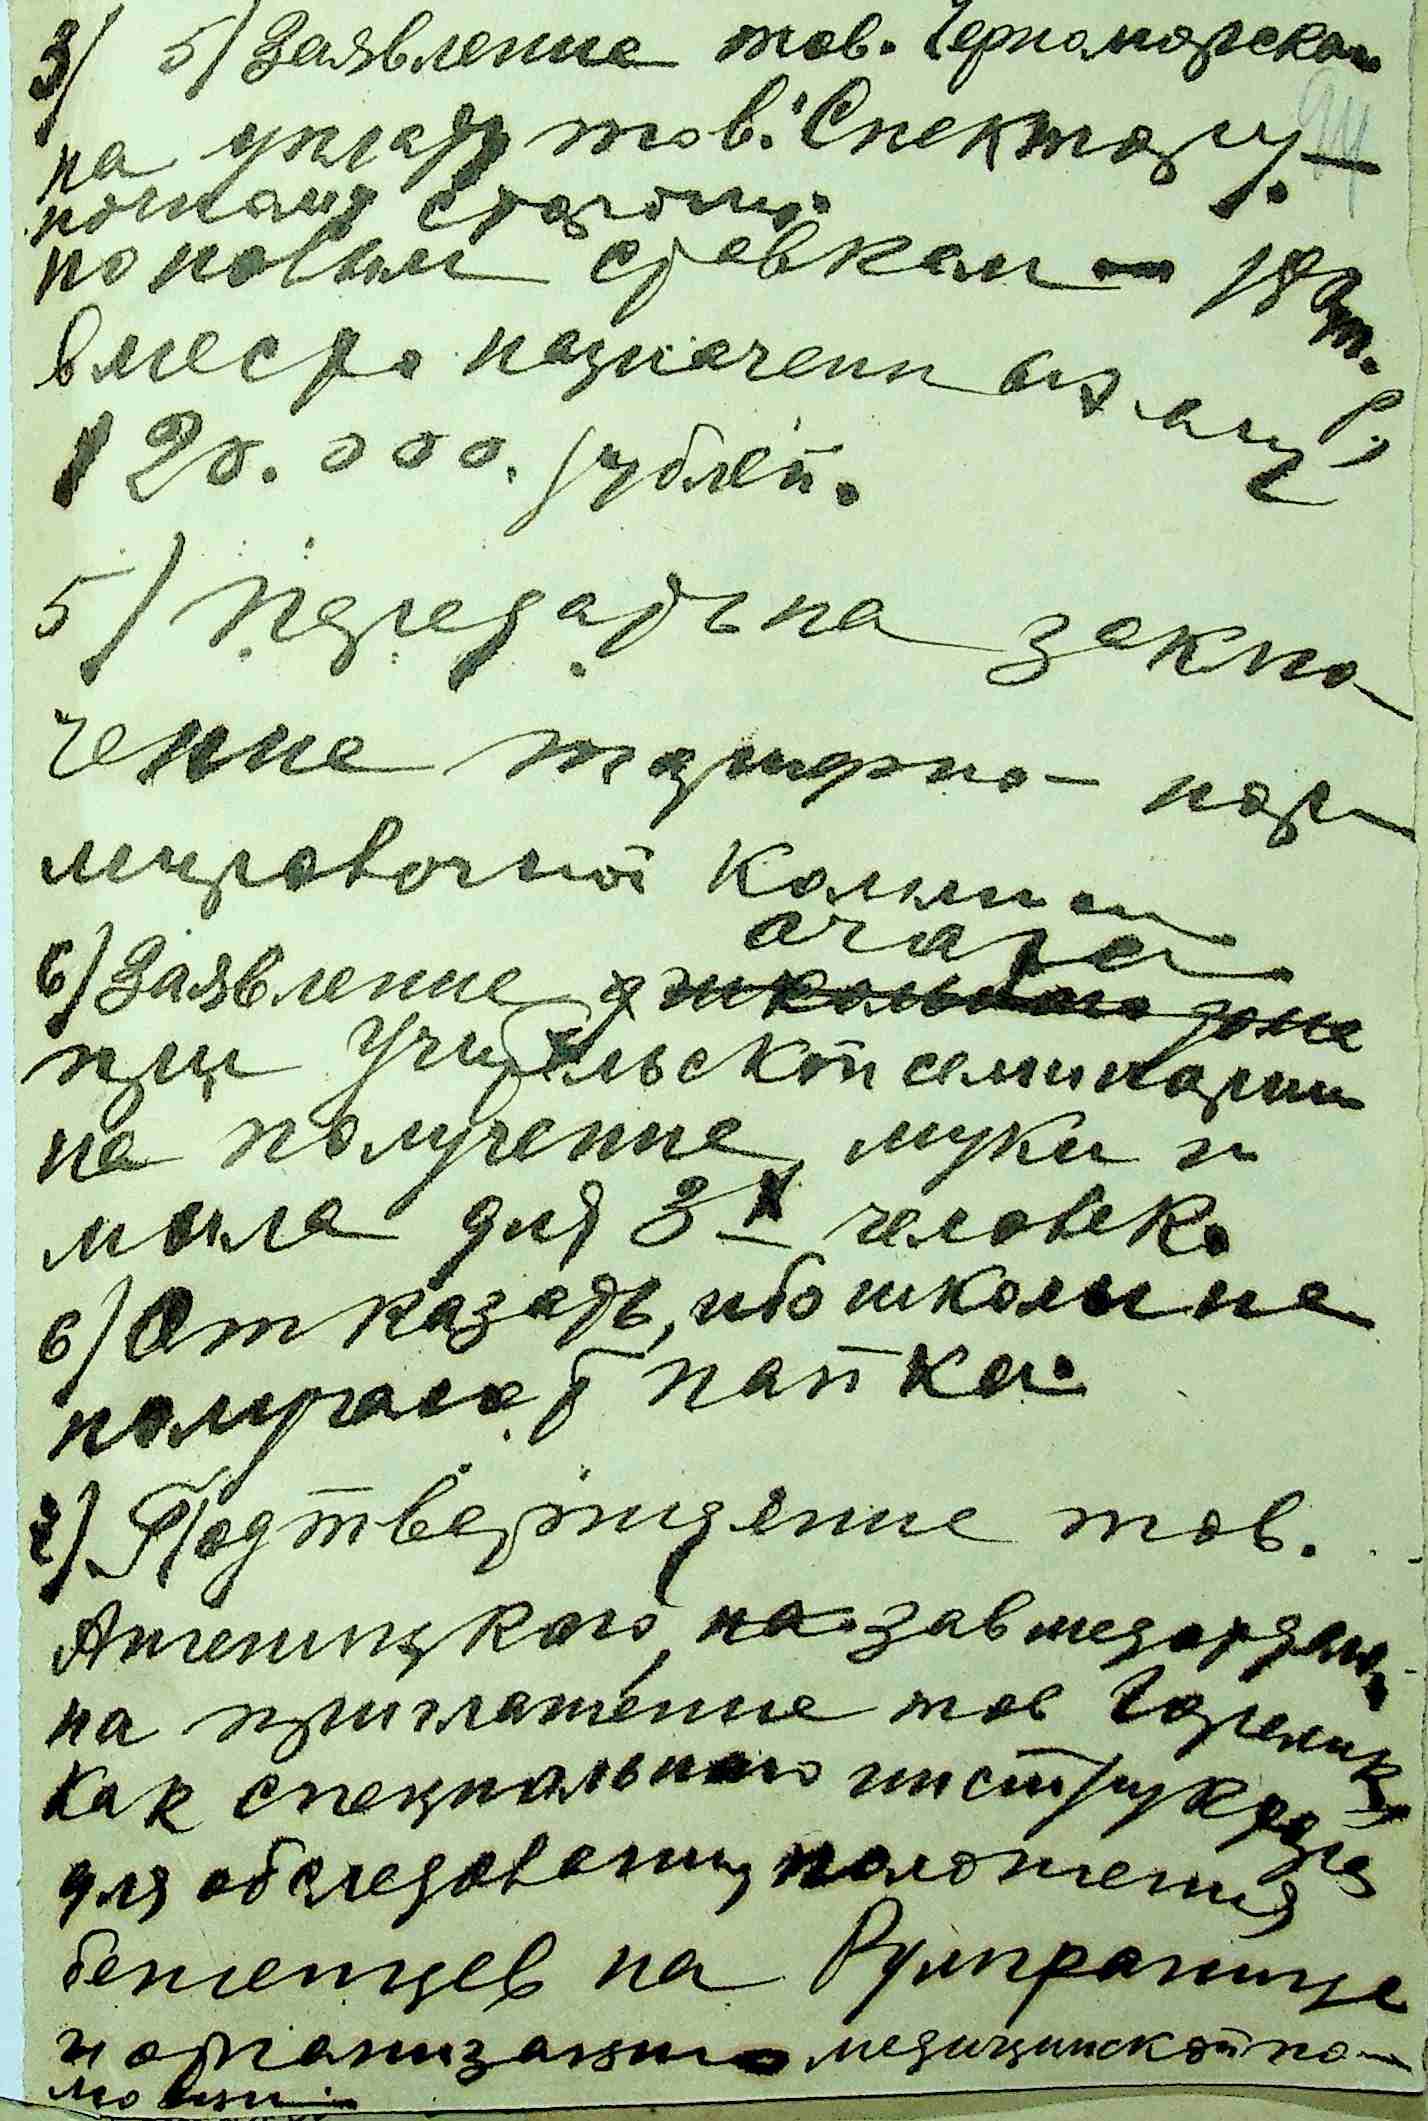 3/ 5) Заявление тов. Черноморской
на уплату тов. Спектору
ночных сторожу
по новым ставкам — 180 т. р.,
вместо назначенных ему
120.000. рублей.
5) Передать на заклю-
чение тарифно-нор-
мировочной комиссии
очага
6) Заявление школьного дома
при Учительской семинарии
на получение муки и
мыла для 3х человек.
6) Отказать, ибо школы не
получают пайка.
7). Подтверждение тов.
на завмедотделом,
на приглашение тов
как специального инструктора
для обследования положения
беженцев на Румгранице
и организацию медицинской по-
мощи.